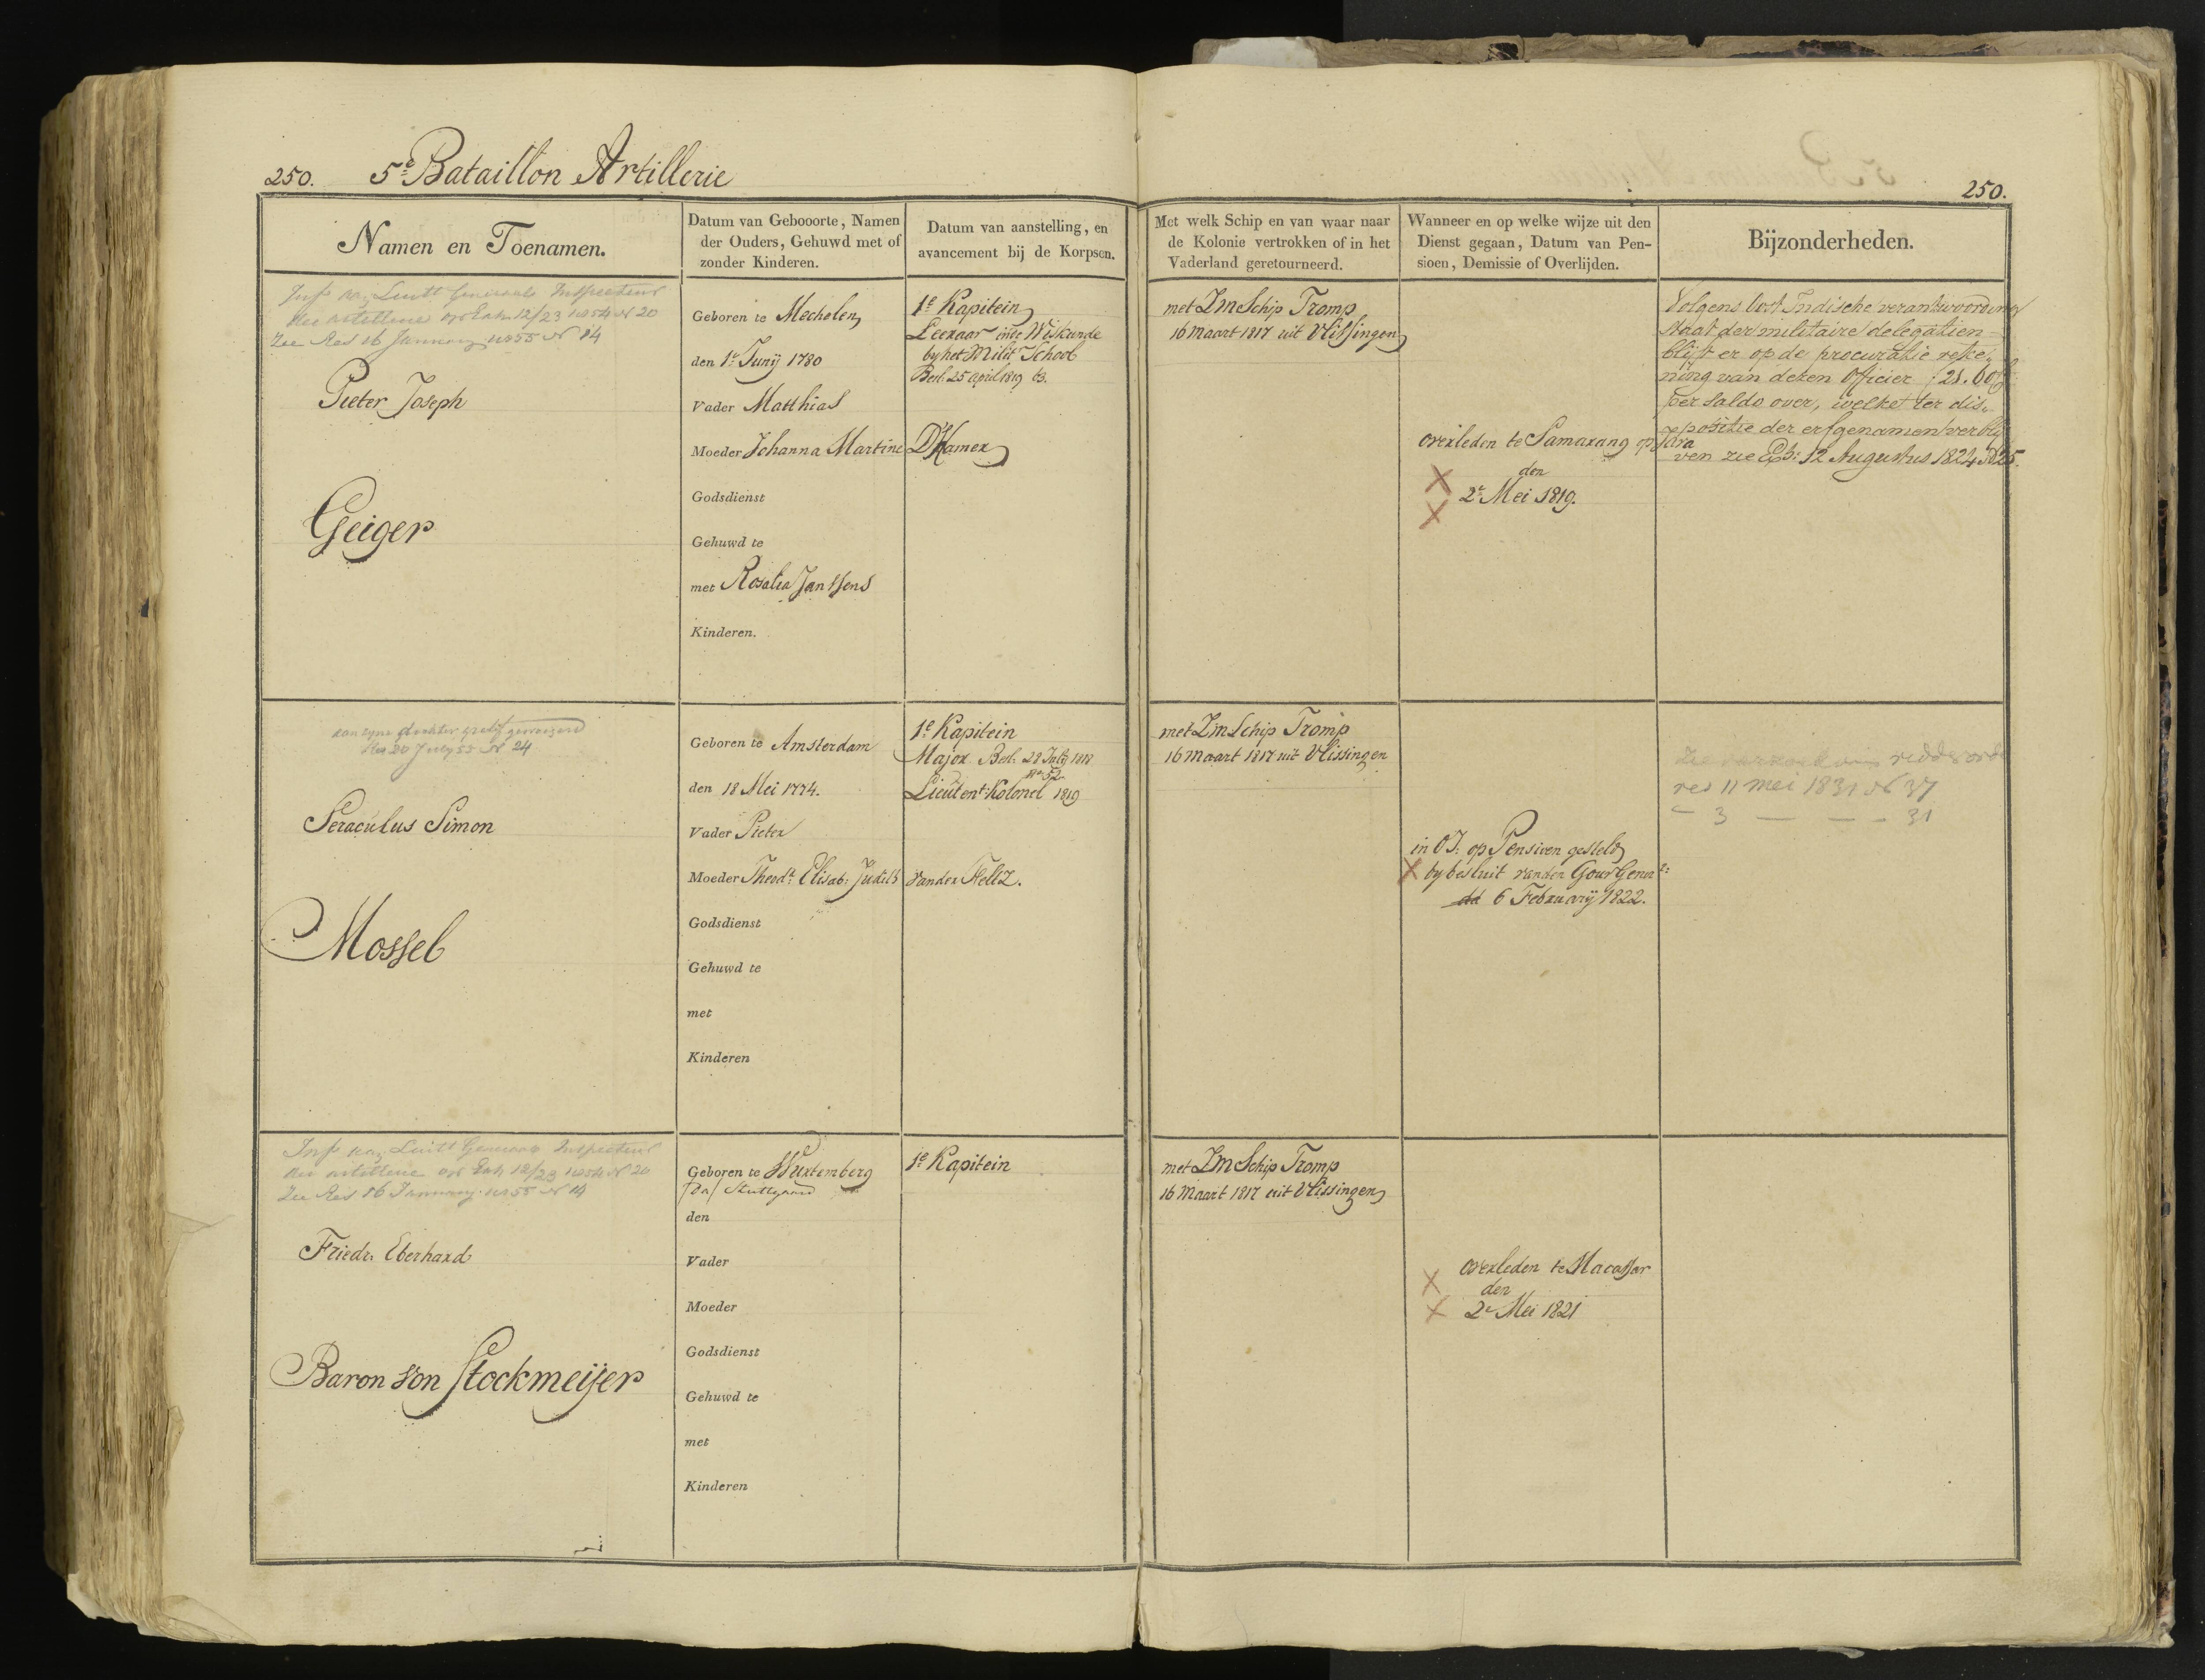 250. 5e Bataillon Artillerie
250.
Namen en Toenamen.
Datum van Gebooorte, Namen
der Ouders, Gehuwd met of
zonder Kinderen.
Datum van aanstelling, en
avancement bij de Korpsen.
Met welk Schip en van waar naar
de Kolonie vertrokken of in het
Vaderland geretourneerd.
Wanneer en op welke wijze uit den
Dienst gegaan, Datum van Pen-
sioen, Demissie of Overlijden.
Bijzonderheden.
Luitt Generaal Inspecteur
der artillerie 12/23 1054 N 20
Zee Res 16 January 1055 N 14
Pieter Joseph
Geiger
Geboren te Mechelen
den 1e Junij 1780
Vader Matthias
Moeder Johanna Martine D'Hamer
Godsdienst
Gehuwd te
met Rosalia Janssens
Kinderen.
1e Kapitein
Leeraar inde Wiskunde
by het Milit School
Besl. 25 april 1819 63.
met Zm Schip Tromp
16 maart 1817 uit Vlissingen
overleden te Samarang op Java
den
2e Mei 1819.
Volgens Oost Indische verantwoording
staat der militaire delegatien
blijft er op de procuratie reke„
ning van dezen Officier f 21.60
per saldo over, welke ter dis„
positie der erfgenamen verbly
ven zie Eb: 12 Augustus 1824 N 25.
aan zyne dochter gratif geweigerd
Res 20 July 55 N 24
Seraculus Simon
Mossel
Geboren te Amsterdam
den 18 Mei 1774.
Vader Pieter
Moeder Theodt. Elisab: Judith van der Heltz.
Godsdienst
Gehuwd te
met
Kinderen
1e Kapitein
Major Besl. 28 July 1818
No 52
Lieutent: Kolonel 1819
met Zm Schip Tromp
16 maart 1817 uit Vlissingen
in OI: op Pensioen gesteld
by besluit van den Gour Gener
dd 6 February 1822.
Zie
res 11 mei 1831 N 37
— 3 — — — 31
Luitt Generaal Inspecteur
der artillerie 12/23 1054 N 20
Zee Res 16 January 1055 N 14
Friedr. Eberhard
Baron von Stockmeijer
Geboren te Wurtemberg
Stuttgard
den
Vader
Moeder
Godsdienst
Gehuwd te
met
Kinderen
1e Kapitein
met Zm Schip Tromp
16 Maart 1817 uit Vlissingen
overleden te Macassar
den
2e Mei 1821